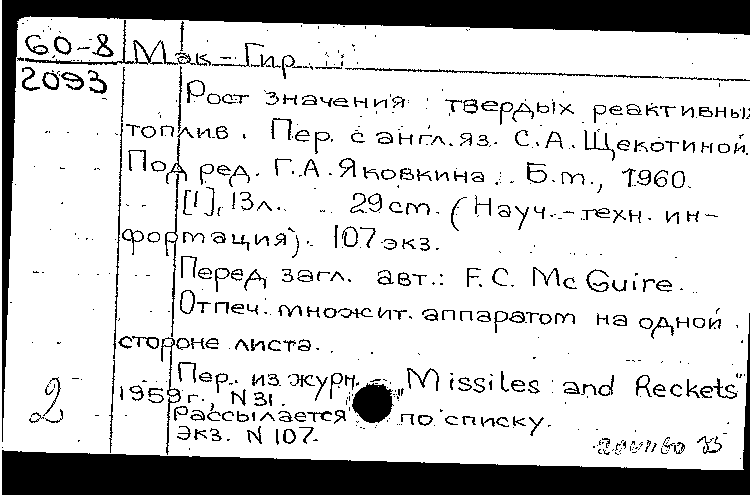 60-8 Мак-Гир
2093
Рост значения твердых реактивных
топлив. Пер. с англ.яз. С.А. Щекотиной.
Под ред. Г.А. Яковкина. Б.т., 1960.
[1], 13л. 29cm. (Науч.-техн. ин-
формация). 107 экз.
Перед загл. авт.: F.C. McGuire.
Отпеч. множит. аппаратом на одной
стороне листа.
Пер. из журн. "Missiles and Reckets"
1959 г., N 31.
2
Рассылается по списку.
Экз. N 107.